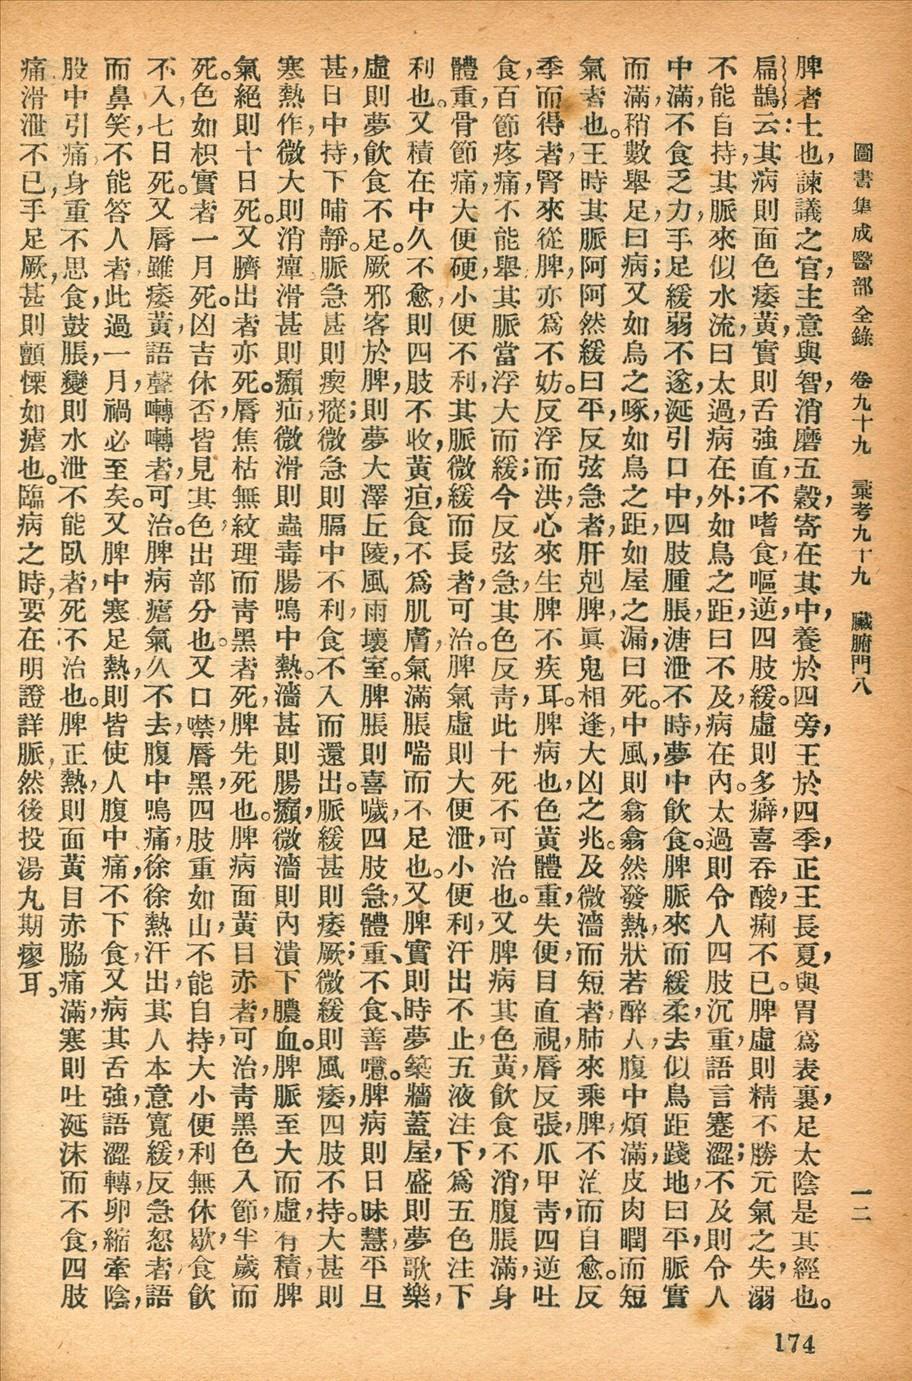 圖書集成醫部全錄　卷九十九　彙考九十九　臟腑門八　一二
脾者土也，諫議之官，主意與智，消磨五穀，寄在其中，養於四旁，王於四季，正王長夏，與胃爲表裏，足太陰是其經也。
扁鵲云：其病則面色痿黃，實則舌強直，不嗜食，嘔逆，四肢緩。虛則多癖喜吞酸，痢不已。脾虛則精不勝，元氣之失，溺
不能自持，其脈來似水流，曰太過，病在外；如鳥之距，曰不及，病在內。太過則令人四肢沉重，語言蹇澀；不及則令人
中滿，不食乏力，手足緩弱不遂，涎引口中，四肢腫脹，溏泄不時，夢中飲食。脾脈來而緩柔，去似鳥距踐地，曰平，脈實
而滿，稍數舉足，曰病；又如鳥之啄，如鳥之距，如屋之漏，曰死。中風則翕翕然發熱，狀若醉人，腹中煩滿，皮肉瞤而短
氣者也。王時其脈阿阿然緩曰平，反弦急者，肝剋脾，眞鬼相逢，大凶之兆。及微濇而短者，肺來乘脾，不治而自愈。反
季而得者，腎來從脾，亦爲不妨。反浮而洪，心來生脾，不疾耳。脾病也，色黃體重，失便，目直視，唇反張，爪甲青，四逆吐
食，百節疼痛，不能舉，其脈當浮大而緩；今反弦急，其色反青，此十死不可治也。又脾病其色黃，飲食不消，腹脹滿，身
體重，骨節痛，大便硬，小便不利，其脈微緩而長者，可治。脾氣虛則大便泄，小便利，汗出不止，五液注下，爲五色注下
利也。又積在中，久不愈，則四肢不收，黃疸，食不爲肌膚，氣滿脹喘而不足也。又脾實則時夢築牆蓋屋，盛則夢歌樂，
虛則夢飲食不足。厥邪客於脾，則夢大澤丘陵，風雨壞室。脾脹則喜噦，四肢急，體重、不食、善噫。脾病則日昳慧，平旦
甚，日中持，下晡靜。脈急甚則瘈瘲；微急則膈中不利，食不入而還出。脈緩甚則痿厥；微緩則風痿，四肢不持。大甚則
寒熱作，微大則消癉，滑甚則㿗疝，微滑則蟲毒腸鳴中熱。濇甚則腸㿗，微濇則內潰下膿血。脾脈至大而虛，有積，脾
氣絕則十日死。又臍出者亦死。唇焦枯無紋理而青黑者死，脾先死也。脾病面黃目赤者，可治，青黑色入節，半歲而
死。色如枳實者一月死。凶吉休否，皆見其色，出部分也。又口噤唇黑，四肢重如山，不能自持，大小便利無休歇，食飲
不入，七日死。又唇雖痿黃，語聲囀囀者，可治。脾病瘧氣久不去，腹中鳴痛，徐徐熱汗出，其人本意寬緩，反急怒者，語
而鼻笑，不能答人者，此過一月，禍必至矣。又脾中寒足熱，則皆使人腹中痛，不下食，又病其舌強，語澀，轉卵縮，牽陰，
股中引痛，身重，不思食，鼓脹，變則水泄不能臥者，死不治也。脾正熱，則面黃目赤脇痛滿，寒則吐涎沫而不食，四肢
痛，滑泄不已，手足厥，甚則顫慄如瘧也。臨病之時，要在明證詳脈，然後投湯丸，期瘳耳。
174